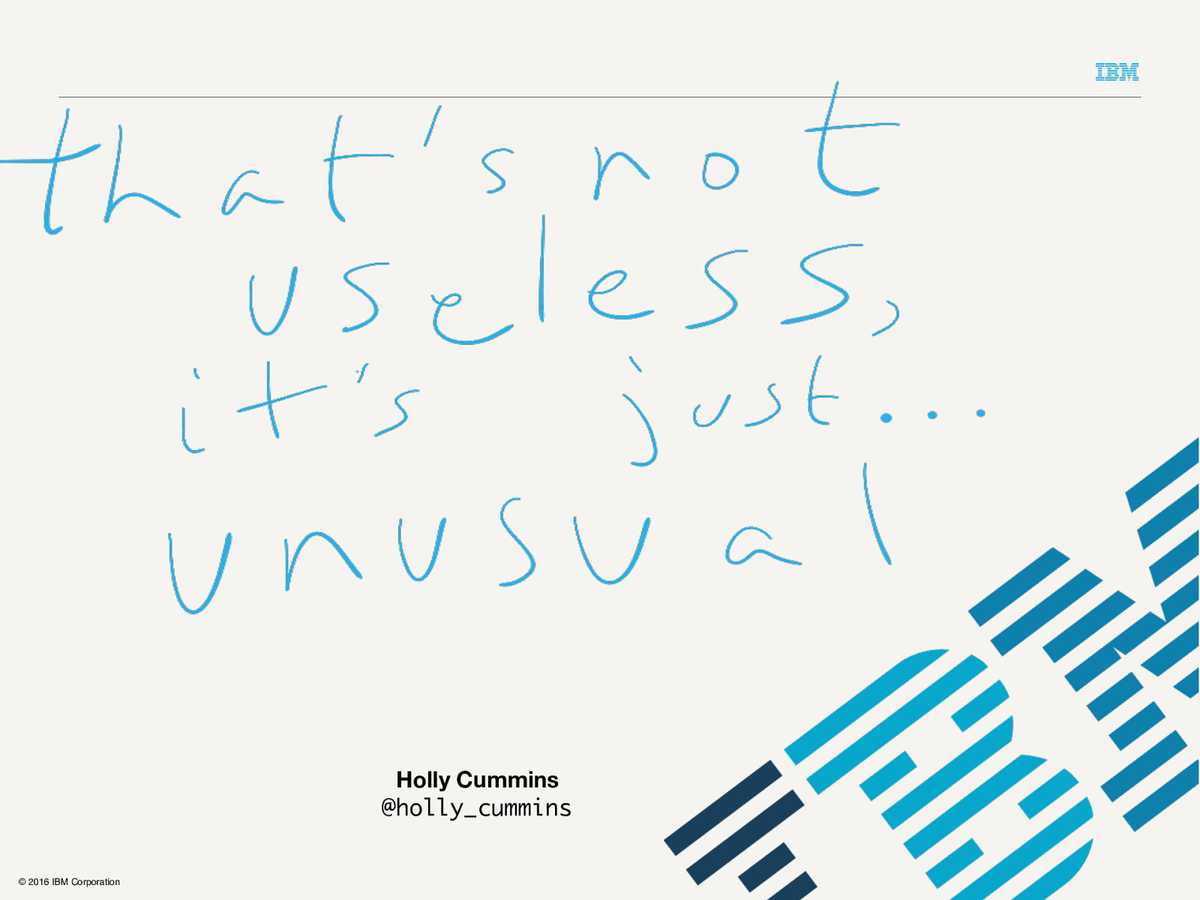 IBM
that's not
useless,
it's just...
unusual
Holly Cummins
@holly_cummins
© 2016 IBM Corporation
IBM